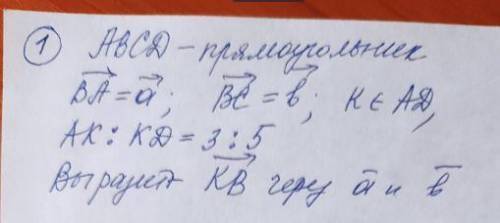 ① ABCD - прямоугольник
BA⃗ = a⃗; BC⃗ = b⃗; K ∈ AD,
AK : KD = 3 : 5
Выразит KB⃗ через a̅ и b̅